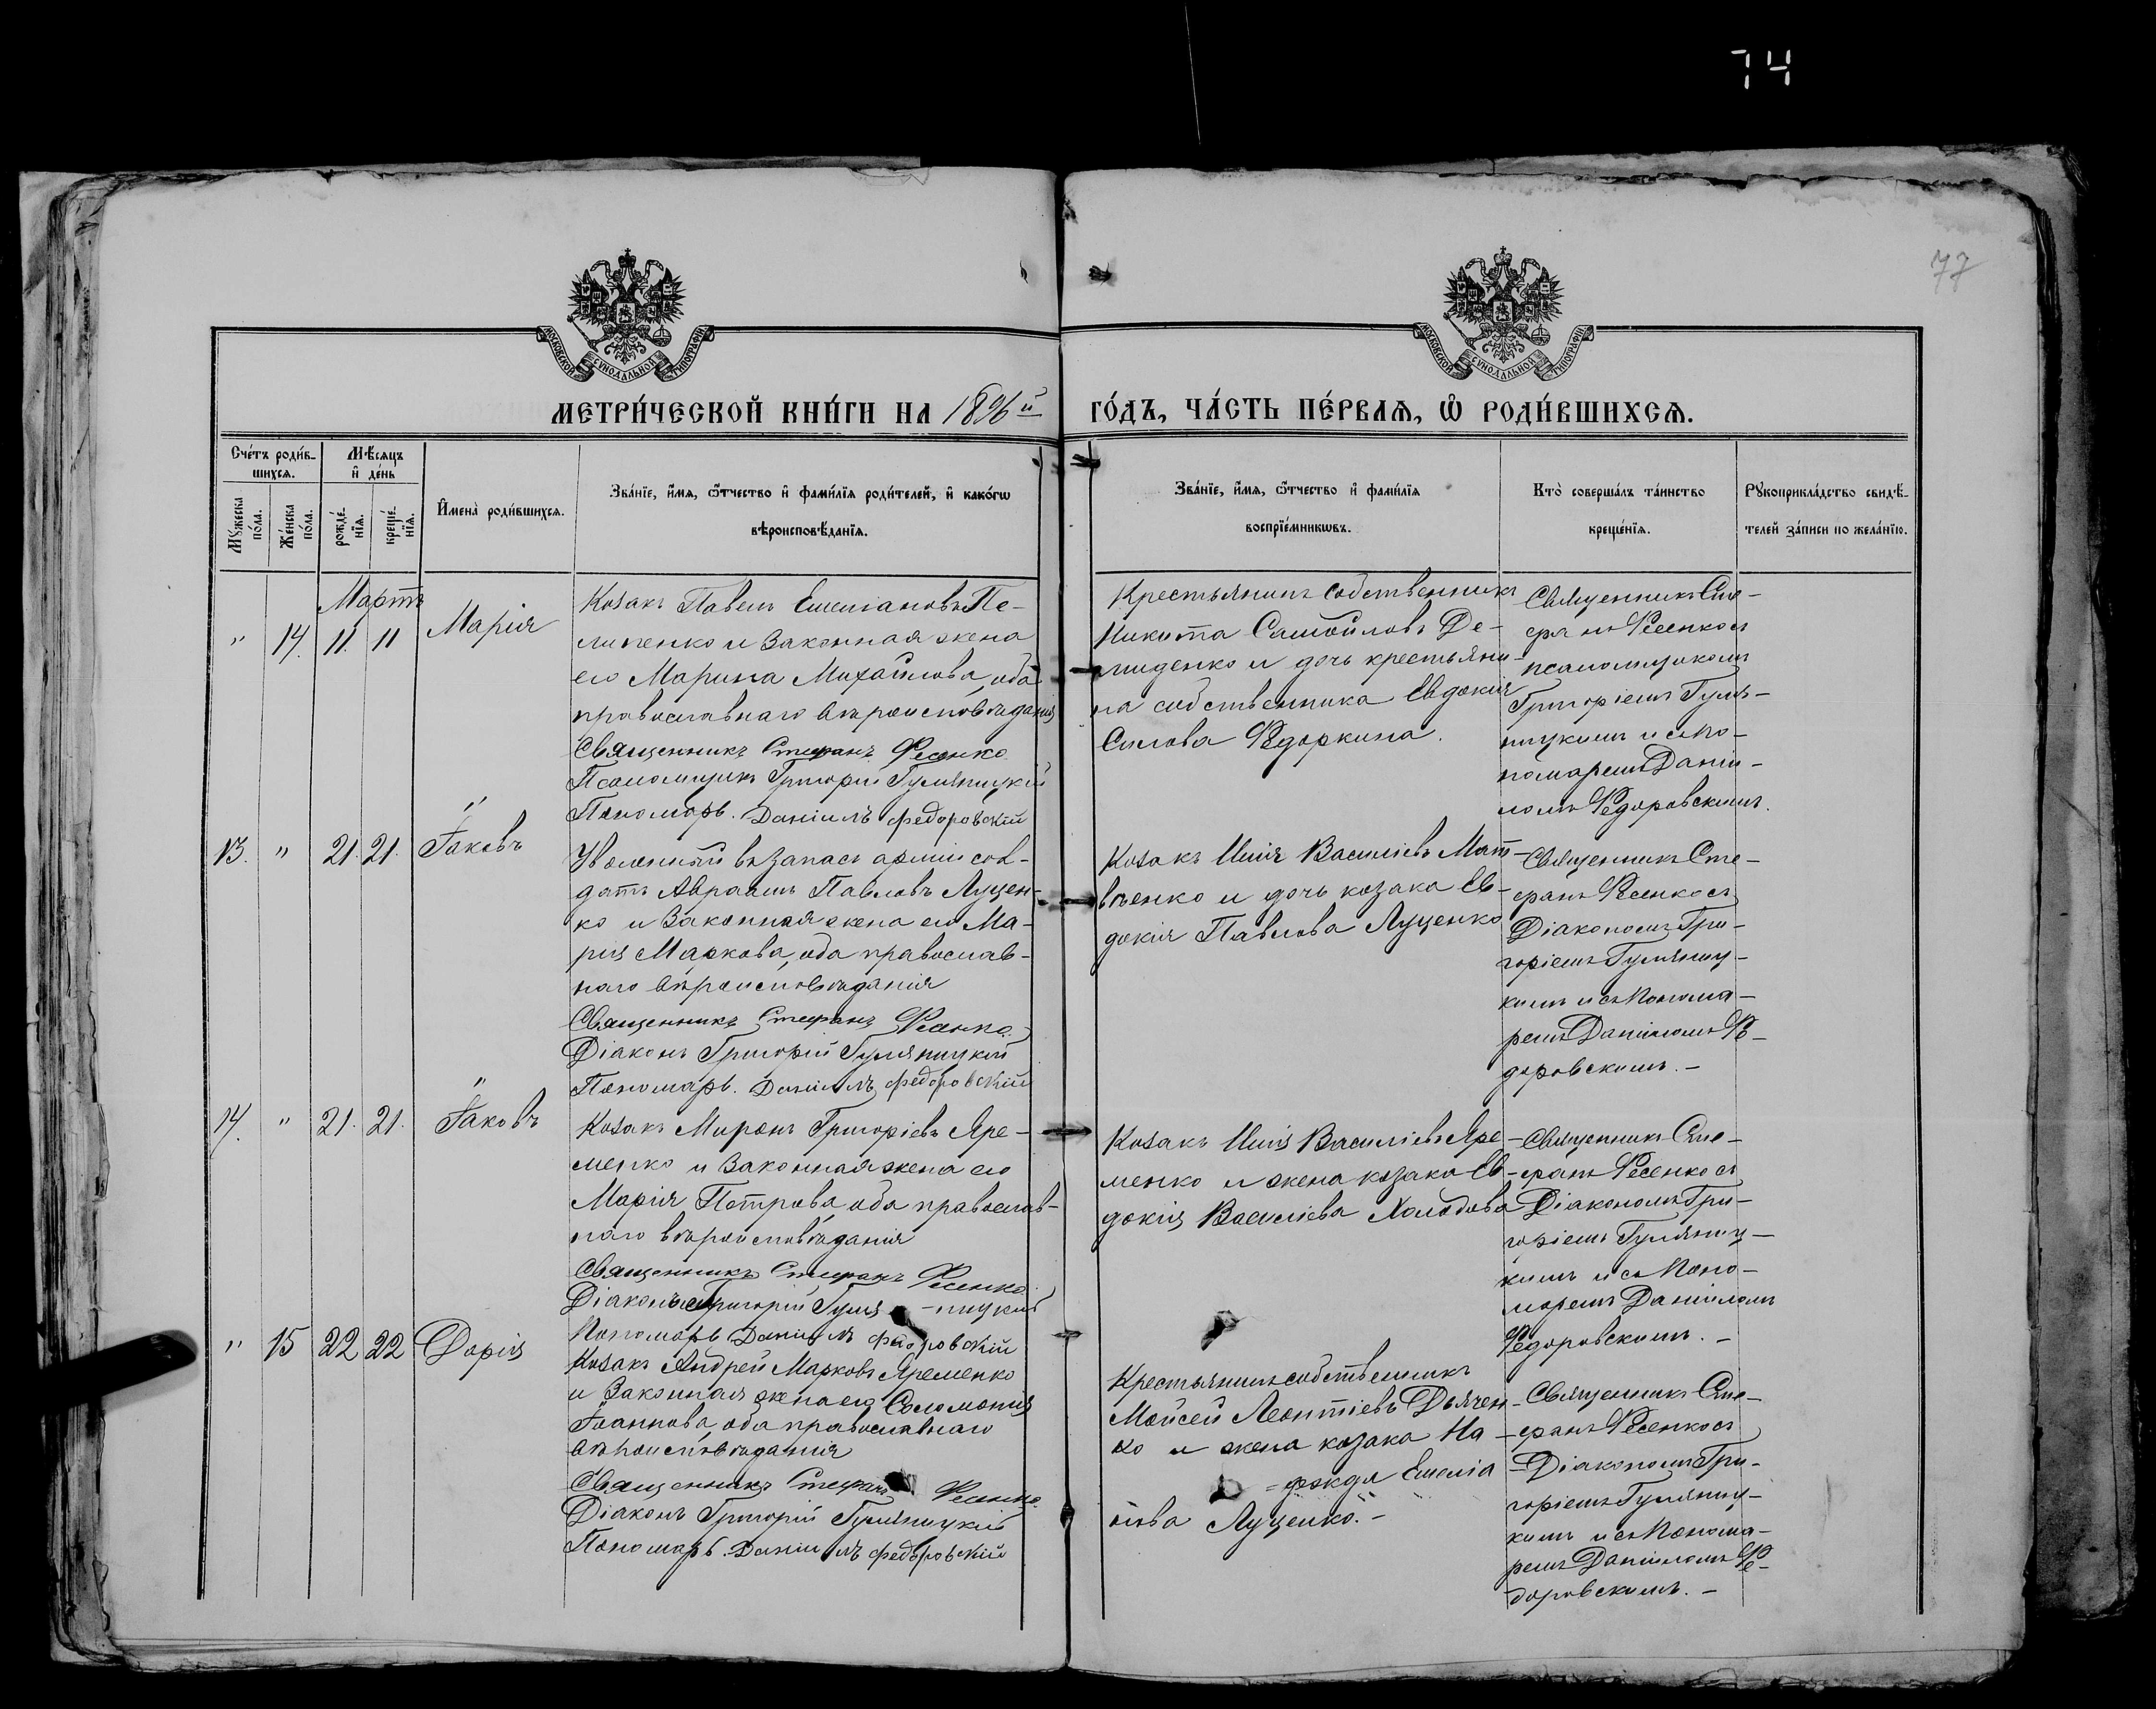 74
77
МОСКОВСКОЙ СѴНОДАЛЬНОЙ ТИПОГРАФІИ
МОСКОВСКОЙ СѴНОДАЛЬНОЙ ТИПОГРАФІИ
МЕТРИ́ЧЕСКОЙ КНИ́ГИ НА 1896й
ГО́ДЪ, ЧА́СТЬ ПЕ́РВАЯ, Ѡ҆ РОДИ́ВШИХСѦ.
Сче́тъ роди́в-
шихсѧ.
Мѣ́сѧцъ
и҆ де́нь
Мꙋ́жеска
по́ла.
Же́нска
по́ла.
рожде́-
нїѧ.
креще́-
нїѧ.
И҆мена̀ роди́вшихсѧ.
Зва́нїе, и҆́мѧ, ѻ҆́тчество и҆ фами́лїѧ роди́телей, и҆ како́гѡ
вѣроисповѣ́данїѧ.
Зва́нїе, и҆́мѧ, ѻ҆́тчество и҆ фами́лїѧ
воспрїе́мникѡвъ.
Кто̀ соверша́лъ та́инство
креще́нїѧ.
Рꙋкоприкла́дство свидѣ́-
телей за́писи по жела́нїю.
Мартъ
" 14. 11. 11 Марія
Козакъ Павелъ Емеліановъ Пе-
липенко и законная жена
его Марина Михайлова, оба
православнаго вѣроисповѣданія
Священникъ Стефанъ Фесенко
Псаломщикъ Григорій Гуляницкій
Пономарь. Даніилъ Федоровскій
Крестьянинъ собственникъ
Никита Самойловъ Де-
миденко и дочь крестьяни-
на собственника Евдокія
Силова Федоркина.
Священникъ Сте-
фанъ Фесенко съ
псаломщикомъ
Григоріемъ Гуля-
ницкимъ и съ По-
номаремъ Даніи-
ломъ Федоровскимъ.
13. " 21. 21. Іаковъ
Уволенный въ запасъ арміи сол-
датъ Авраамъ Павловъ Луцен-
ко и законная жена его Ма-
рія Маркова, оба православ-
наго вѣроисповѣданія
Священникъ Стефанъ Фесенко.
Діаконъ Григорій Гуляницкій
Пономарь. Даніилъ Федоровскій
Козакъ Илія Василіевъ Мат-
вѣенко и дочь козака Ев-
докія Павлова Луценко
Священникъ Сте-
фанъ Фесенко съ
Діакономъ Гри-
горіемъ Гуляниц-
кимъ и съ Понома-
ремъ Даніиломъ Фе-
доровскимъ. -
14. " 21. 21. Іаковъ
Козакъ Миронъ Григоріевъ Яре-
менко и законная жена его
Марія Петрова, оба православ-
наго вѣроисповѣданія
Священникъ Стефанъ Фесенко.
Діаконъ Григорій Гуля - ницкій
Пономарь Даніилъ Федоровскій
Козакъ Илія Василіевъ Яре-
менко и жена козака Ев-
докія Василіева Холодова
Священникъ Сте-
фанъ Фесенко съ
Діакономъ Гри-
горіемъ Гуляниц-
кимъ и съ Поно-
маремъ Даніиломъ
Федоровскимъ. -
" 15 22 22 Дарія
Козакъ Андрей Марковъ Яременко
и законная жена его Соломонія
Іоаннова, оба православнаго
вѣроисповѣданія
Священникъ Стефанъ Фесенко.
Діаконъ Григорій Гуляницкій
Пономарь. Даніилъ Федоровскій
Крестьянинъ собственникъ
Мойсей Леонтіевъ Дьячен-
ко и жена козака На-
= дежда Емеліа
нова Луценко. -
Священникъ Сте-
фанъ Фесенко съ
Діакономъ Гри-
горіемъ Гуляниц-
кимъ и съ Понома-
ремъ Даніиломъ Фе-
доровскимъ. -